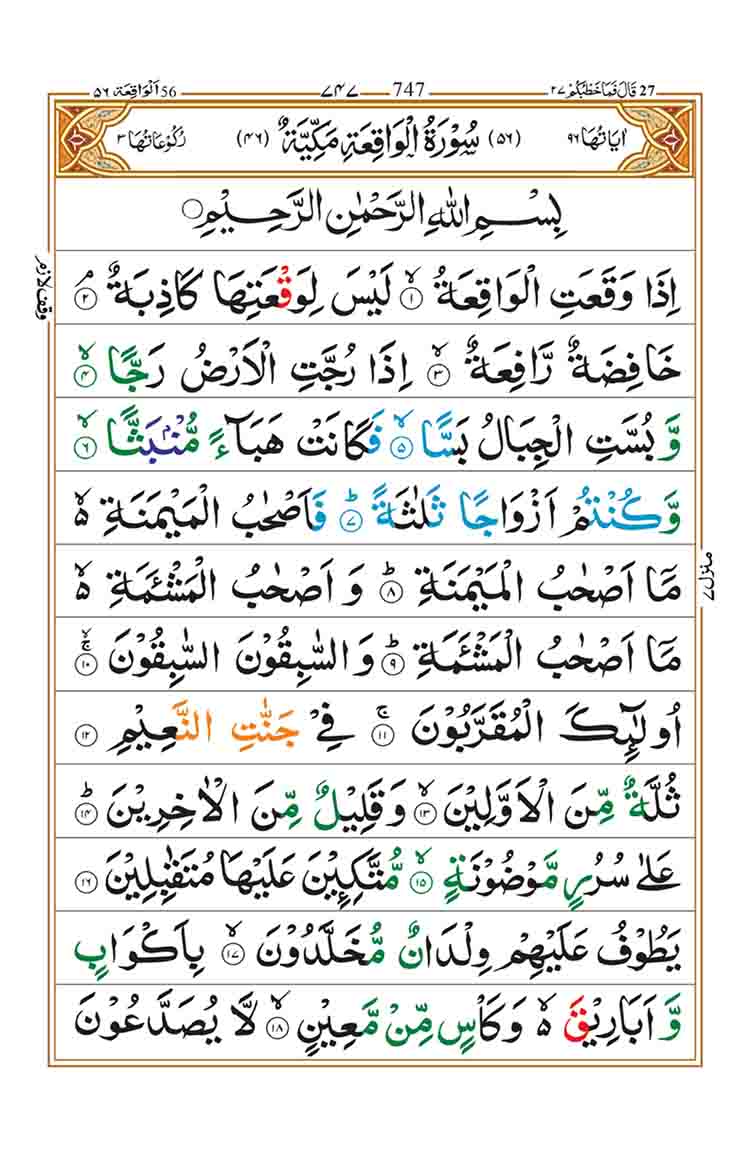 27 قَالَ فَمَا خَطْبُكُمْ ٢٧ 747 ٧٤٧ 56 اَلْوَاقِعَة ٥٦
اٰيَاتُهَا ٩٦ (٥٦) سُوْرَةُ الْوَاقِعَةِ مَكِّيَّةٌ (٤٦) رُكُوْعَاتُهَا ٣
بِسْمِ اللّٰهِ الرَّحْمٰنِ الرَّحِيْمِ
وقف لازم
اِذَا وَقَعَتِ الْوَاقِعَةُ ۙ‏﴿١﴾ لَيْسَ لِوَقْعَتِهَا كَاذِبَةٌ ۘ‏﴿٢﴾
خَافِضَةٌ رَّافِعَةٌ ۙ‏﴿٣﴾ اِذَا رُجَّتِ الْاَرْضُ رَجًّا ۙ‏﴿٤﴾
وَّ بُسَّتِ الْجِبَالُ بَسًّا ۙ‏﴿٥﴾ فَكَانَتْ هَبَآءً مُّنْۢبَثًّا ۙ‏﴿٦﴾
وَّكُنْتُمْ اَزْوَاجًا ثَلٰثَةً ؕ‏﴿٧﴾ فَاَصْحٰبُ الْمَيْمَنَةِ ۙ
مَاۤ اَصْحٰبُ الْمَيْمَنَةِ ؕ‏﴿٨﴾ وَ اَصْحٰبُ الْمَشْـَٔمَةِ ۙ
منزل ٧
مَاۤ اَصْحٰبُ الْمَشْـَٔمَةِ ؕ‏﴿٩﴾ وَالسّٰبِقُوْنَ السّٰبِقُوْنَ ۚۙ‏﴿١٠﴾
اُولٰٓئِكَ الْمُقَرَّبُوْنَ ۚ‏﴿١١﴾ فِيْ جَنّٰتِ النَّعِيْمِ ﴿١٢﴾
ثُلَّةٌ مِّنَ الْاَوَّلِيْنَ ۙ‏﴿١٣﴾ وَقَلِيْلٌ مِّنَ الْاٰخِرِيْنَ ؕ‏﴿١٤﴾
عَلٰى سُرُرٍ مَّوْضُوْنَةٍ ۙ‏﴿١٥﴾ مُّتَّكِـِٕيْنَ عَلَيْهَا مُتَقٰبِلِيْنَ ﴿١٦﴾
يَطُوْفُ عَلَيْهِمْ وِلْدَانٌ مُّخَلَّدُوْنَ ۙ‏﴿١٧﴾ بِاَكْوَابٍ
وَّ اَبَارِيْقَ ۙ وَكَاْسٍ مِّنْ مَّعِيْنٍ ۙ‏﴿١٨﴾ لَّا يُصَدَّعُوْنَ